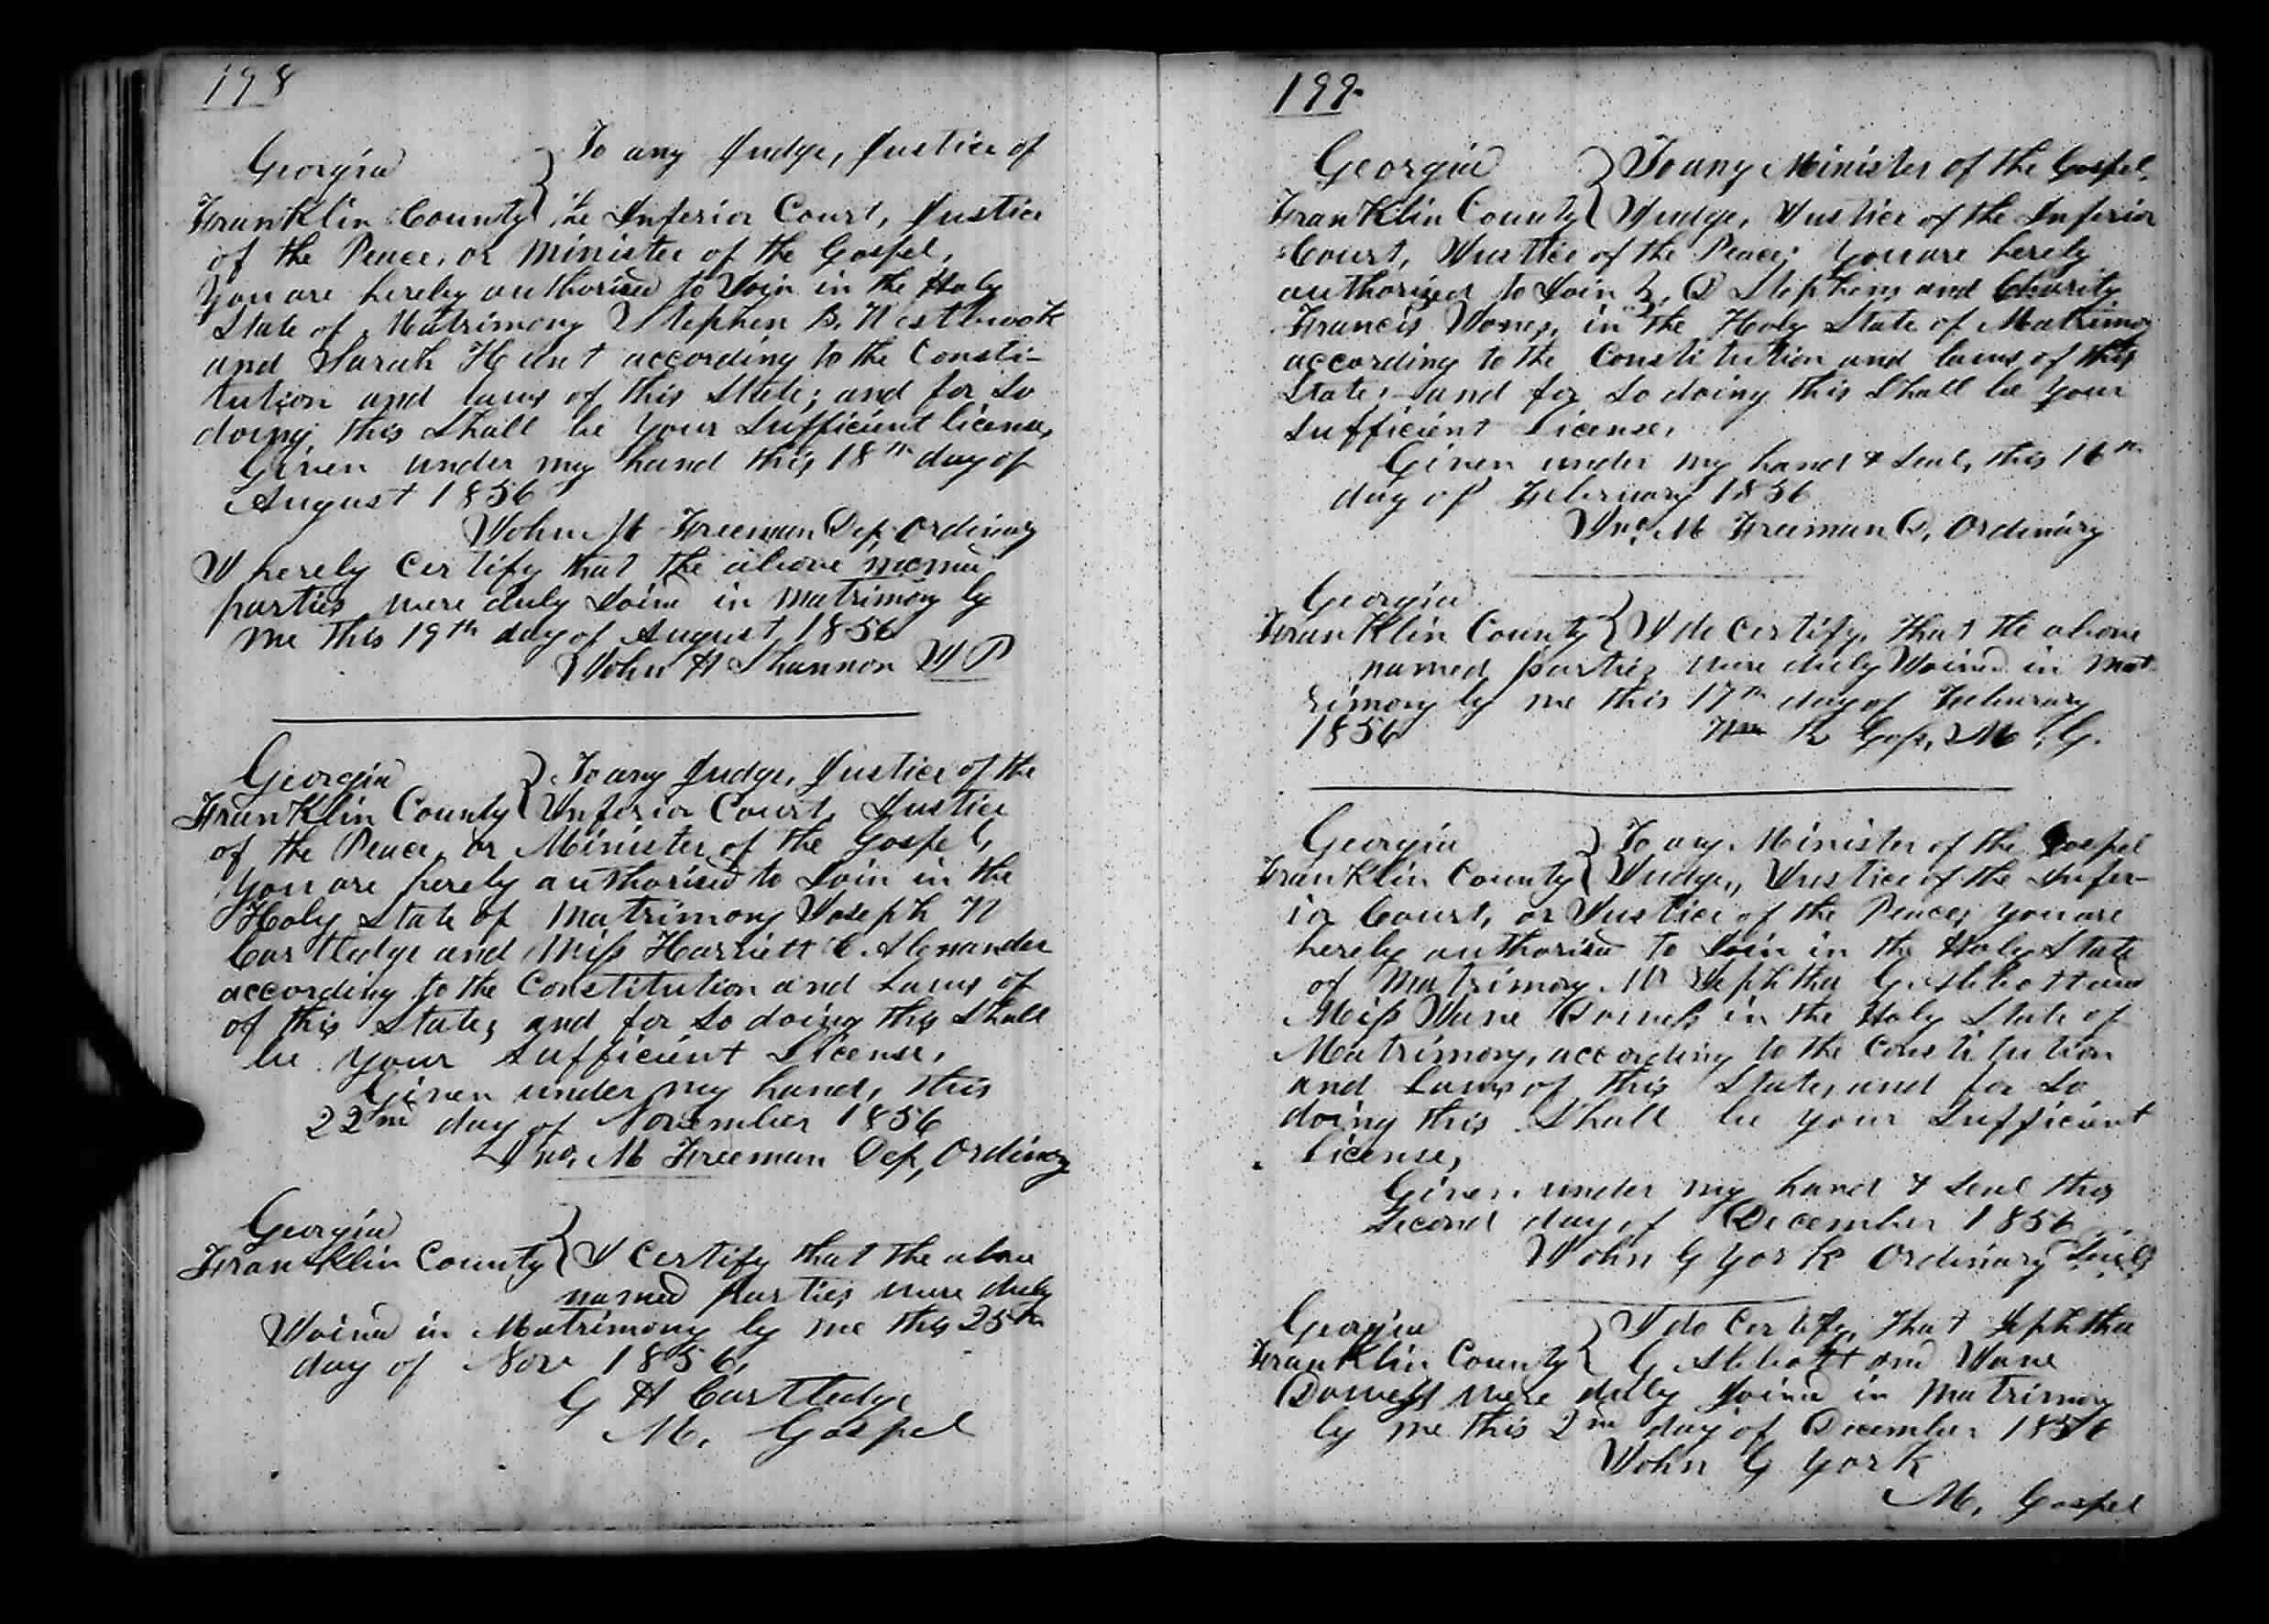 198
Georgia } To any Judge, Justice of
Franklin County } the Inferior Court, Justice
of the Peace, or Minister of the Gospel,
You are hereby authorised to Join in the Holy
State of Matrimony Stephen B. Westbrook
and Sarah Hunt according to the Consti-
tution and laws of this State; and for so
doing this Shall be Your Sufficient license,
Given under my hand this 18th day of
August 1856
John M Freeman Dep, Ordinary
I hereby Certify that the above named
parties were duly Joind in matrimony by
me this 19th day of August 1856
John H Shannon JP
Georgia } To any Judge, Justice of the
Franklin County } Inferior Court, Justice
of the Peace, or Minister of the Gospel,
You are hereby authorised to Join in the
Holy State of Matrimony Joseph N
Cartledge and Miss Harriett C. Alexander
according to the Constitution and Laws of
of this State, and for so doing this Shall
be your Sufficient License,
Given under my hand, this
22nd day of November 1856
Jno. M Freeman Dep, Ordinary
Georgia
Franklin County } I Certify that the above
named parties were duly
Joind in Matrimony by me this 25th
day of Nov 1856,
G H Cartledge
M. Gospel
199.
Georgia } To any Minister of the Gospel,
Franklin County } Judge, Justice of the Inferior
Court, Justice of the Peace; You are hereby
authorized to Join D Stephens and Charity
Francis Jones, in the Holy State of Matrimony
according to the Constitution and laws of this
State; and for so doing this Shall be Your
Sufficient License,
Given under my hand & Seal, this 16th
day of February 1856
Jno. M Freeman D, Ordinary
Georgia
Franklin County } I do Certify, that the above
named parties were duly Joined in mat
rimony by me this 17th day of February
1856 Wm R Goss, M. G.
Georgia } To any Minister of the Gospel
Franklin County } Judge, Justice of the Infer-
ior Court, or Justice of the Peace; You are
hereby authorised to Join in the Holy State
of Matrimony Mr Jephtha G. Abbott and
Miss Jane in the Holy State of
Matrimony, according to the Constitution
and Laws of this State, and for so
doing this Shall be your Sufficient
License,
Given under my hand & Seal this
Second day of December 1856
John G York Ordinary Seal
Georgia } I do Certify, that Jephtha
Franklin County } G Abbott and Jane
were duly Joind in Matrimony
by me this 2nd day of December 1856
John G York
M. Gospel